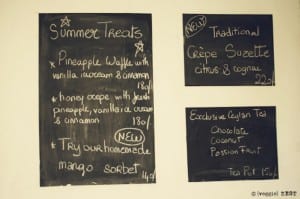 Summer Treats
* Pineapple Waffle with
vanilla icecream & cinnamon
180/-
* honey crepe with fresh
pineapple, vanilla ice cream
& cinnamon 180/-
NEW
* Try our homemade
mango sorbet
140/-
NEW
Traditional
Crêpe Suzette
citrus & cognac
220/-
Exclusive Ceylon Tea
Chocolate
Coconut
Passion Fruit
Tea Pot 150/-